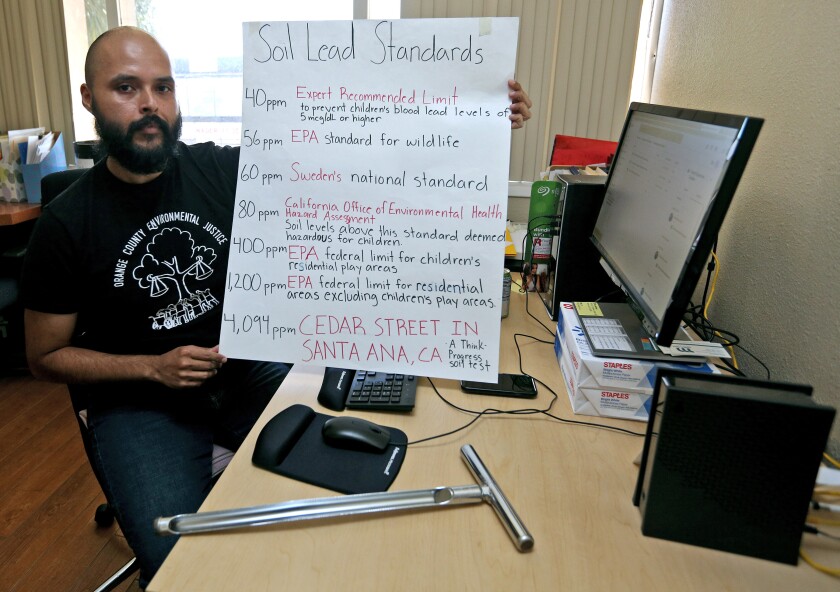 Soil Lead Standards
40ppm Expert Recommended Limit
to prevent children's blood lead levels of
5 mcg/dL or higher
56 ppm EPA standard for wildlife
60 ppm Sweden's national standard
80 ppm California Office of Environmental Health
Hazard Assessment
Soil levels above this standard deemed
hazardous for children.
400ppm EPA federal limit for children's
residential play areas
1,200ppm EPA federal limit for residential
areas excluding children's play areas
4,094 ppm CEDAR STREET IN
SANTA ANA, CA
- A Think-
Progress
soil test
ORANGE COUNTY ENVIRONMENTAL JUSTICE
STAPLES
STAPLES